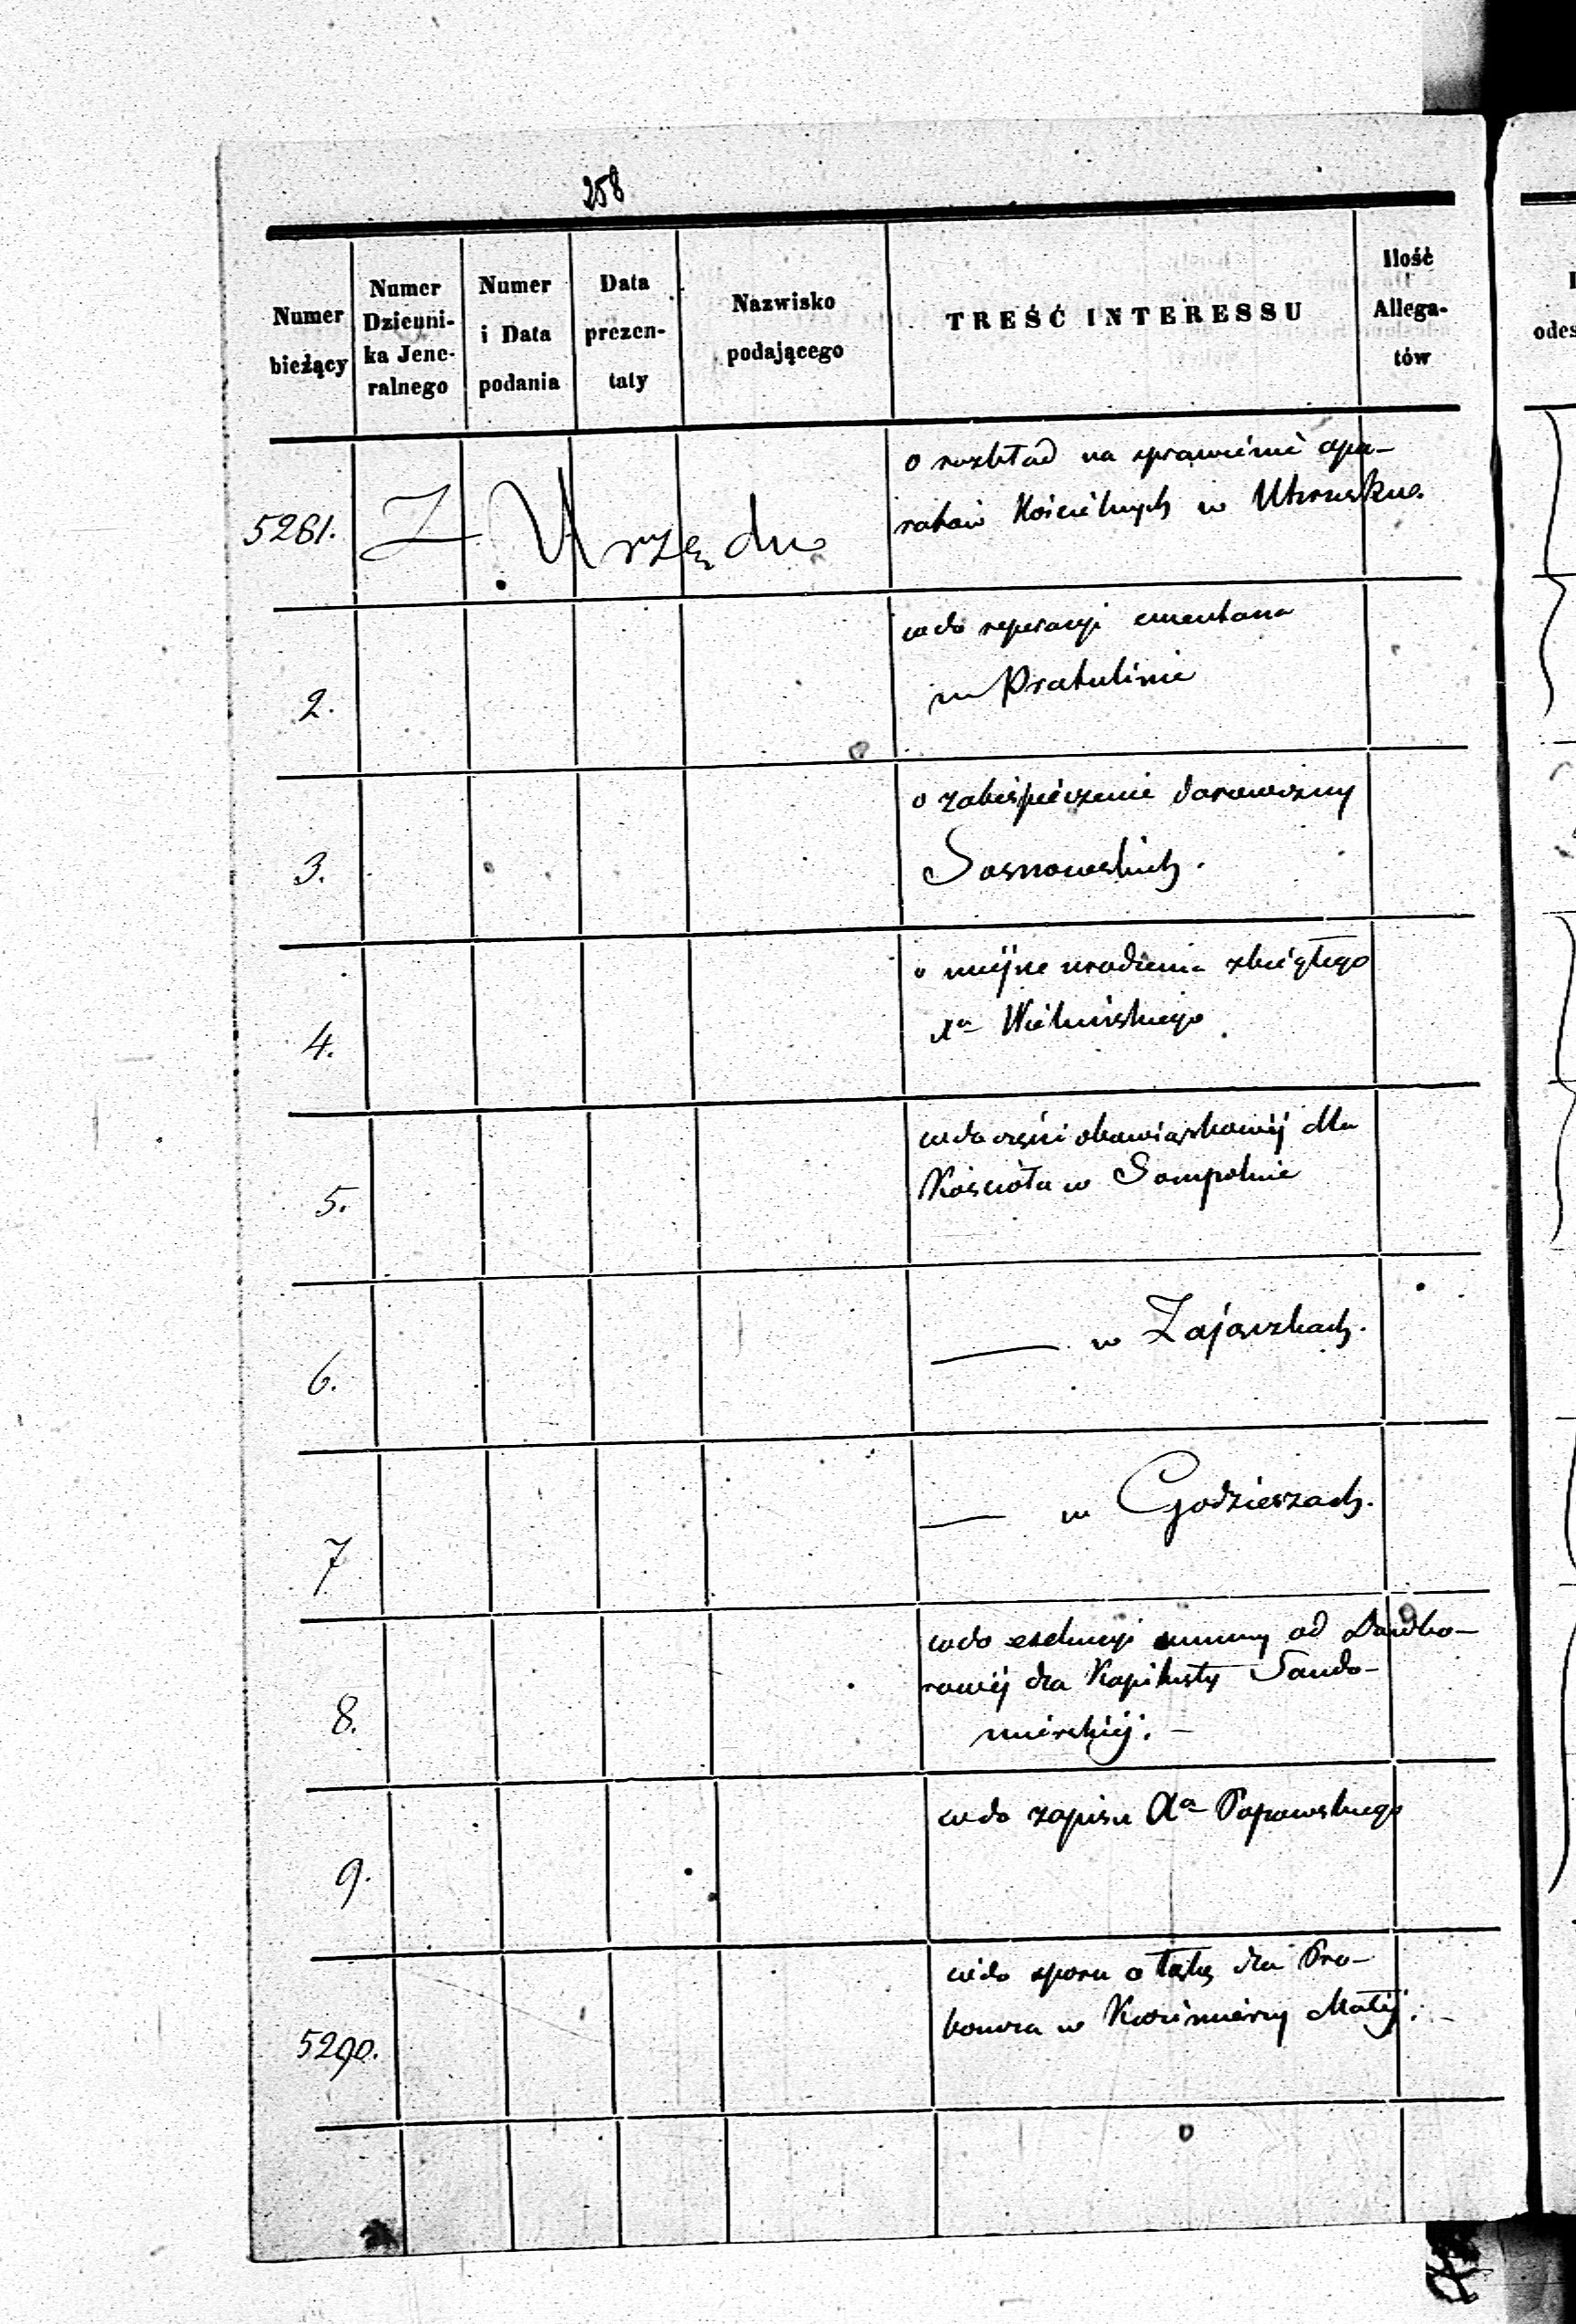 258
Numer bieżący
Numer Dzienni-ka Jene-ralnego
Numer i Data podania
Data prezen-taty
Nazwisko podającego
TREŚĆ INTERESSU
Ilość Allega-tów
odes
5281.
Z Urzędu
o rozkład na sprawienie apa-
ratów Kościelnych w
2.
co do reperacyi cmentarza
w Pratulinie
3.
o zabespieczenie darowizny
Sosnowskich.
4.
o miejsce urodzenia zbiegłego
Xa Wieluńskiego
5.
co do części obowiązkowej dla
Kościoła w Sompolnie
6.
— w Zajączkach.
7
— w Godzieszach.
8.
co do exekucyi summy od
dla Kapituły Sando-
mierskiej. —
9.
co do zapisu Xa Popowskiego
5290.
co do sporu o łąkę dla Pro-
boszcza w Kazimierzy Małej. —